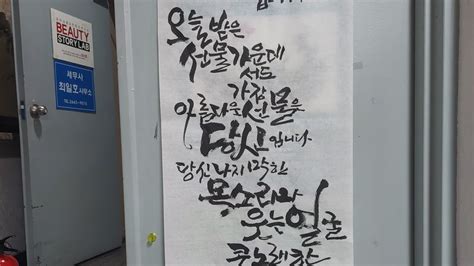 BEAUTY
STORY LAB
세무사
최일호 사무소
오늘 받은
선물 가운데
서도
가장
아름다운 선물은
당신입니다
당신 나지막한
목소리와
웃는 얼굴
콧노래 한